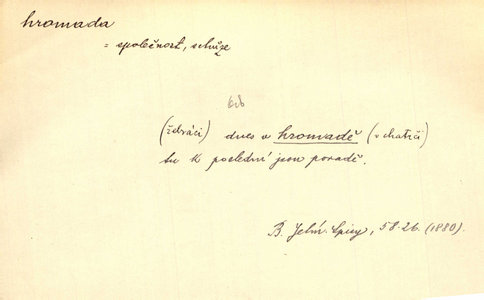 hromada
= společnost, schůze
(žebráci) dnes v hromadě (v chatrči)
tu k poslední jsou poradě.
B. Jelín. Spisy, 58·26. (1880).